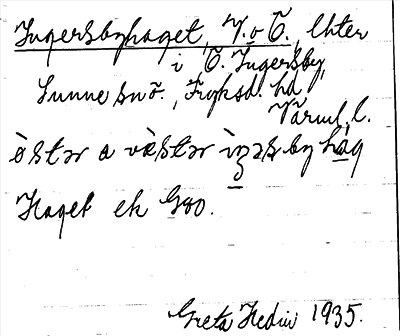 Ingersbyhaget, V. o Ö., lhter
i Ö. Ingersby,
Sunne sn ö., Fryksd. hd
Värml. l.
östər a vèstər ìŋəsbyhag
Haget ek Geo.
Greta Hedin 1935.